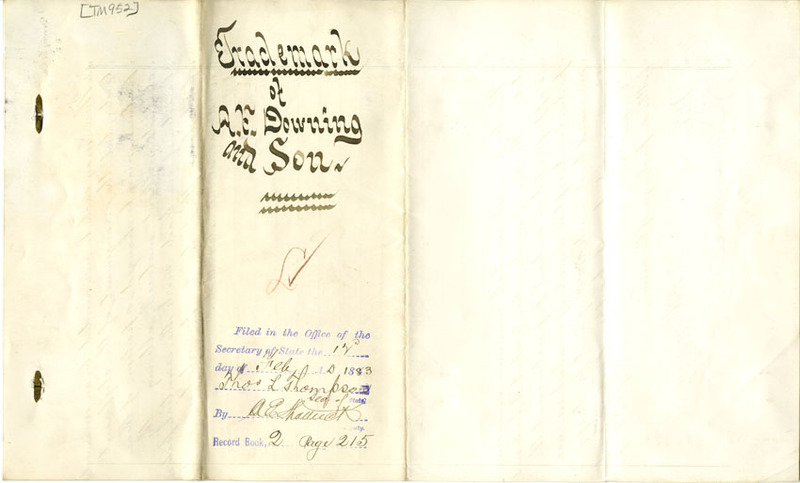 [TM952]
Trademark
of
A.F. Downing
and Son.
Filed in the Office of the
Secretary of State the 17
day of Feb A.D 1883
Thos L Thompson
Secy of State
By A E
Record Book, 2 Page 215